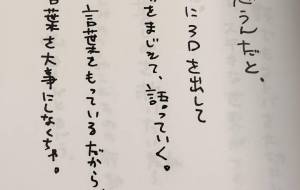 思うんだと、
に3Dを出して
をまじえて、語っていく。
言葉をもっているだから、
言葉を大事にしなくちゃ。